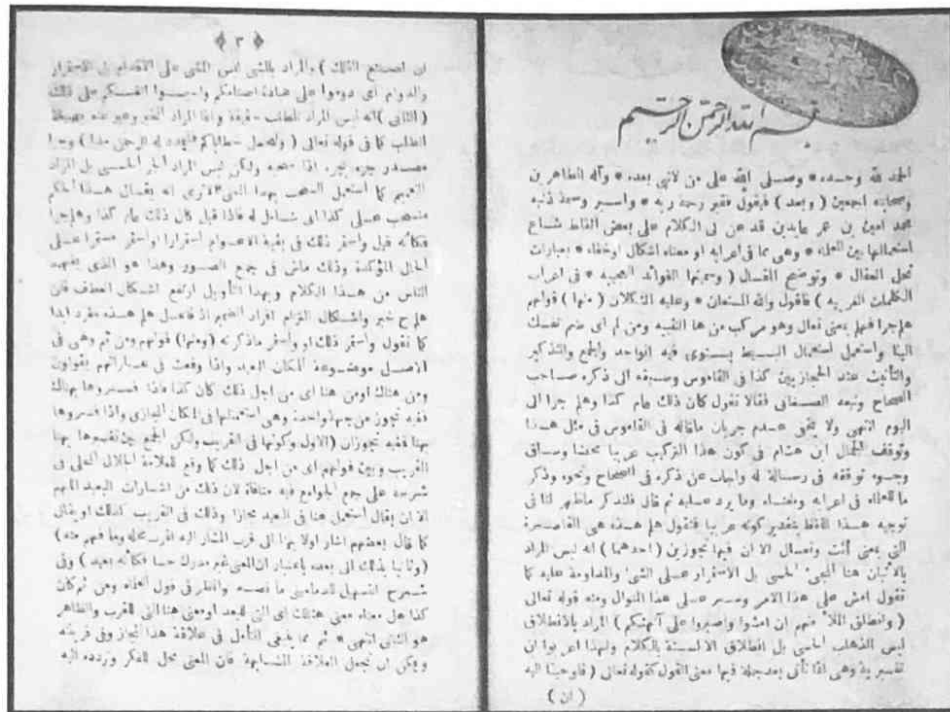 بسم الله الرحمن الرحيم
الحمد لله وحده * وصلى الله على من لا نبى بعده * وآله الطاهرين
وصحابته اجمعين ( وبعد ) فيقول فقير رحمة ربه * واسير وصمة ذنبه
محمد امين بن عمر عابدين قد عن لى الكلام على بعض الفاظ شاع
استعمالها بين العلماء * وهى مما فى اعرابه او معناه اشكال او خفاء * بعبارات
تحل العقال * وتوضح المقال ( وسميتها الفوائد العجيبه * فى اعراب
الكلمات الغريبه ) فاقول والله المستعان * وعليه التكلان ( منها ) قولهم
هلم جرا فهلم بمعنى تعال وهو مركب من ها التنبيه ومن لم اى ضم نفسك
الينا واستعمل استعمال البسيط يستوى فيه الواحد والجمع والتذكير
والتأنيث عند الحجازيين كذا فى القاموس وسبقه الى ذكره صاحب
الصحاح وتبعه الصغانى فقالا تقول كان ذلك عام كذا وهلم جرا الى
اليوم انتهى ولا يخفى عدم جريان ماقاله فى القاموس فى مثل هذا
وتوقف الجمال ابن هشام فى كون هذا التركيب عربيا محضا وساق
وجوه توقفه فى رسالة له واجاب عن ذكره فى الصحاح ونحوه وذكر
ما للعلماء فى اعرابه ومعناه وما يرد عليه ثم قال فلنذكر ماظهر لنا فى
توجيه هذا اللفظ بتقدير كونه عربيا فنقول هلم هذه هى القاصرة
التى بمعنى ائت وتعال الا ان فيها تجوزين ( احدهما ) انه ليس المراد
بالاتيان هنا المجئ الحسى بل الاستمرار على الشئ والمداومة عليه كما
تقول امش على هذا الامر وسر على هذا المنوال ومنه قوله تعالى
( وانطلق الملأ منهم ان امشوا واصبروا على آلهتكم ) المراد بالانطلاق
ليس الذهاب الحسى بل انطلاق الالسنة بالكلام ولهذا اعربوا ان
تفسيرية وهى انما تأتى بعد جملة فيها معنى القول كقوله تعالى ( فاوحينا اليه
( ان )
﴿ ٣ ﴾
ان اصنع الفلك ) والمراد بالمشى ليس المشى على الاقدام بل الاستمرار
والدوام اى دوموا على عبادة اصنامكم واحبسوا انفسكم على ذلك
( الثانى ) انه ليس المراد الطلب حقيقة وانما المراد الخبر وعبر عنه بصيغة
الطلب كما فى قوله تعالى ( ولنحمل خطاياكم فليمدد له الرحمن مدا ) وجرا
مصدر جره يجره اذا سحبه ولكن ليس المراد الجر الحسى بل المراد
التعميم كما استعمل السحب بهذا المعنى الا ترى انه يقال هذا الحكم
منسحب على كذا اى شامل له فاذا قيل كان ذلك عام كذا وهلم جرا
فكأنه قيل واستمر ذلك فى بقية الاعوام استمرارا او استمر مستمرا على
الحال المؤكدة وذلك ماش فى جميع الصور وهذا هو الذى يفهمه
الناس من هذا الكلام وبهذا التأويل ارتفع اشكال العطف فان
هلم ح خبر واشكال التزام افراد الضمير اذ فاعل هلم هذه مفرد ابدا
كما تقول واستمر ذلك او واستمر ماذكر * ( ومنها ) قولهم ومن ثم وهى فى
الاصل موضوعة للمكان البعيد واذا وقعت فى عباراتهم يقولون
ومن هناك او من هنا اى من اجل ذلك كان كذا فاذا فسروها بهناك
ففيه تجوز من جهة واحدة وهى استعمالها فى المكان المجازى واذا فسروها
بهنا ففيه تجوزان ( الاول وكونها فى القريب ولكن الجمع بين تفسيرها بهنا
القريب وبين قولهم اى من اجل ذلك كما وقع للعلامة الجلال المحلى فى
شرحه على جمع الجوامع فيه منافاة لان ذلك من اشارات البعيد اللهم
الا ان يقال استعمل هنا فى البعيد مجازا وذلك فى القريب كذلك او يقال
كما قال بعضهم اشار اولا بهنا الى قرب المشار اليه لقرب محله وما فهم منه )
( وثانيا بذلك الى بعده باعتبار ان المعنى غير مدرك حسا فكأنه بعيد ) وفى
شرح التسهيل للدمامينى ما نصه وانظر فى قول العلماء ومن ثم كان
كذا هل معناه معنى هنالك اى التى للبعد او معنى هنا التى للقرب والظاهر
هو الثانى انتهى * ثم مما ينبغى التأمل فى علاقة هذا المجاز وفى قرينته
ويمكن ان تجعل العلاقة المشابهة فان المعنى محل للفكر وتردده اليه